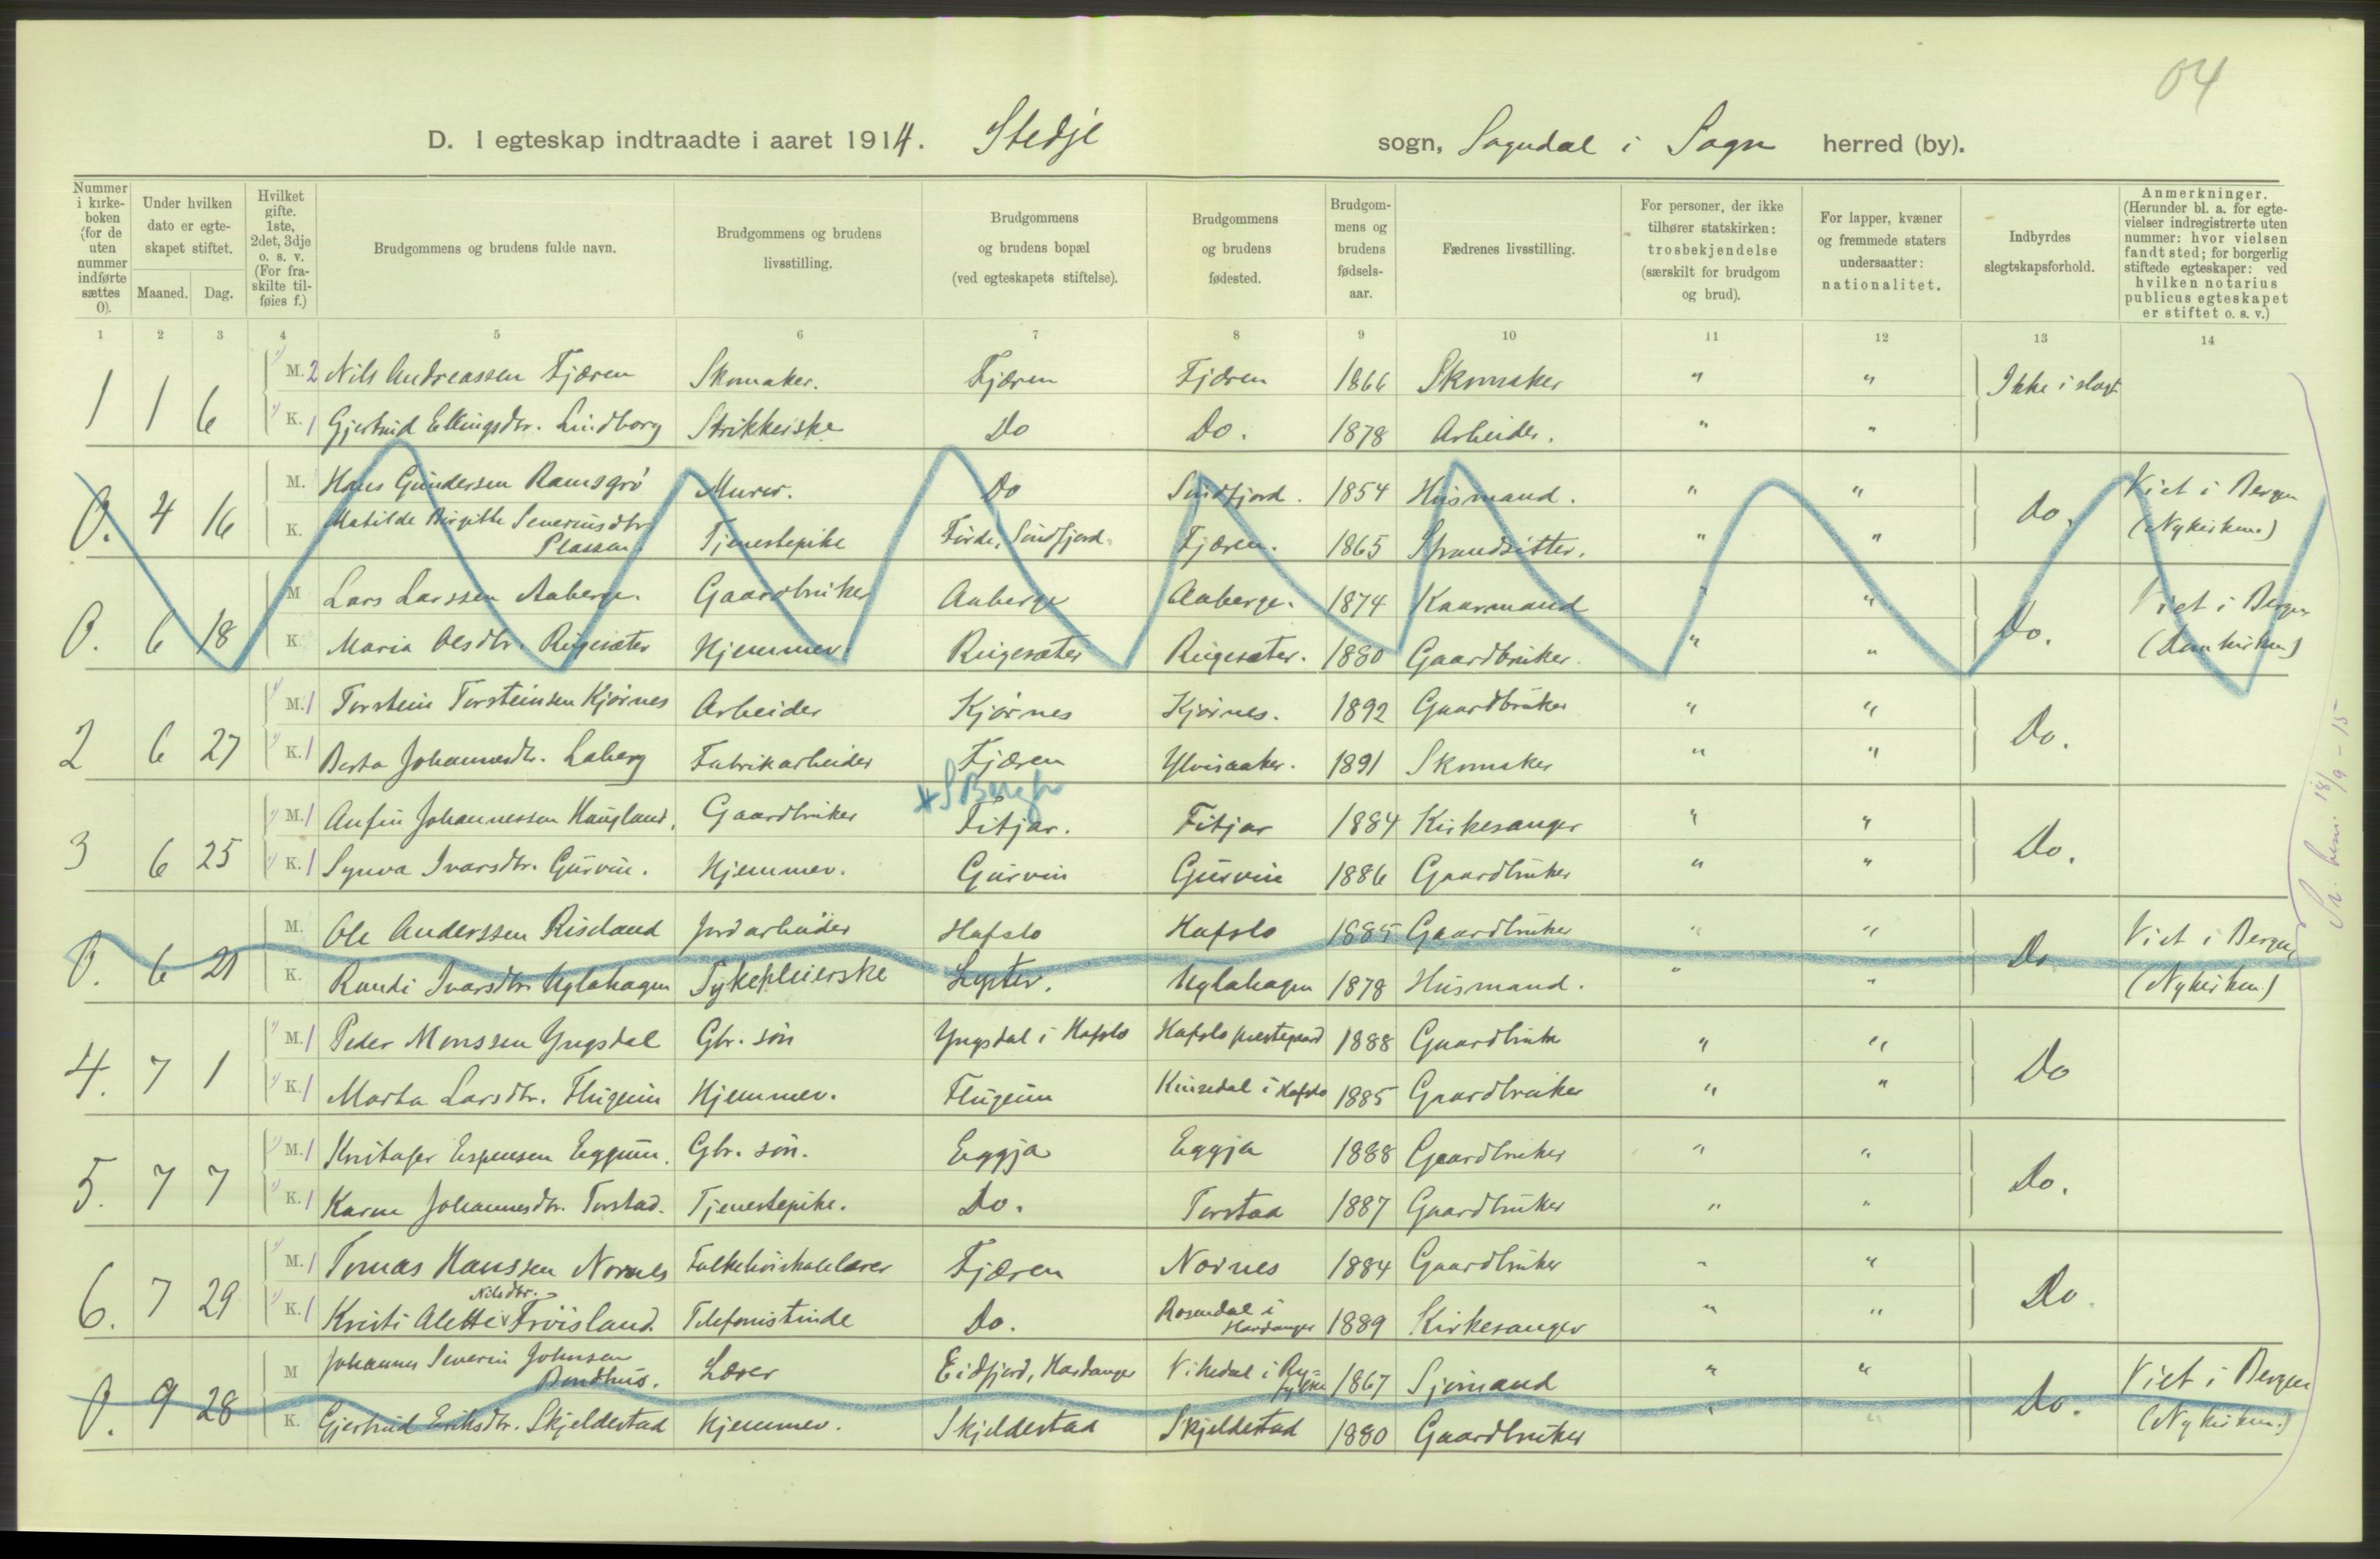 04
D. I egteskap indtraadte i aaret 1914. Stedje sogn, Sogndal i Sogn herred (by).
Nummer i kirke-boken (for de uten nummer indførte sættes 0).
Under hvilken dato er egte-skapet stiftet.
Maaned. Dag.
Hvilket gifte. 1ste, 2det, 3dje o. s. v. (For fra-skilte til-føies f.)
Brudgommens og brudens fulde navn.
Brudgommens og brudens livsstilling.
Brudgommens og brudens bopæl (ved egteskapets stiftelse).
Brudgommens og brudens fødested.
Brudgom-mens og brudens fødsels-aar.
Fædrenes livsstilling.
For personer, der ikke tilhører statskirken: trosbekjendelse (særskilt for brudgom og brud).
For lapper, kvæner og fremmede staters undersaatter: nationalitet.
Indbyrdes slegtskapsforhold.
Anmerkninger. (Herunder bl. a. for egte-vielser indregistrerte uten nummer: hvor vielsen fandt sted; for borgerlig stiftede egteskaper: ved hvilken notarius publicus egteskapet er stiftet o. s. v.)
1 2 3 4 5 6 7 8 9 10 11 12 13 14
1 1 6 M. 2 Nils Andreassen Fjæren Skomaker. Fjæren Fjæren 1866 Skomaker " " Ikke i slegt
K. 1 Gjertrud Ellingsdtr. Lindborg Strikkerske Do Do. 1878 Arbeider. " "
0. 4 16 M. Hans Gundersen Ramsgrø Murer. Do Sundfjord. 1854 Husmand. " " Do. Viet i Bergen
K. Matilde Birgitte Severinsdtr. Plassen. Tjenestepike Førde, Sundfjord. Fjæren. 1865 Strandsitter. " " (Nykirken)
0. 6 18 M Lars Larssen Aaberge. Gaardbruker Aaberge Aaberge. 1874 Kaarmand " " Do. Viet i Bergen
K Maria Olsdtr. Ringesæter Hjemmev. Ringesæter Ringesæter. 1880 Gaardbruker. " " (Domkirken)
2 6 27 M. 1 Torstein Torsteinsen Kjørnes Arbeider Kjørnes Kjørnes. 1892 Gaardbruker " " Do.
K. 1 Berta Johannesdtr. Laberg Fabrikarbeider Fjæren Ylvisaaker. 1891 Skomaker " "
3 6 25 M. 1 Anfin Johannessen Haugland. Gaardbruker Fitjar. Fitjar 1884 Kirkesanger " " Do.
K. 1 Synva Ivarsdtr. Gurvin. Hjemmev. Gurvin Gurvin 1886 Gaardbruker " "
0. 6 21 M. Ole Anderssen Riseland Jordarbeider Hafslo Hafslo 1885 Gaardbruker " " Do Viet i Bergen
K. Randi Ivarsdtr. Uglahagen Sykepleierske Lyster. Uglahagen 1878 Husmand. " " (Nykirken)
4. 7 1 M. 1 Peder Monssen Yngsdal Gbr. søn Yngsdal i Hafslo Hafslo prestegaard 1888 Gaardbruker " " Do
K. 1 Marta Larsdtr. Flugeim Hjemmev. Flugeim Kinsedal i Hafslo 1885 Gaardbruker " "
5. 7 7 M. 1 Kristofer Espensen Eggum. Gbr. søn. Eggja Eggja 1888 Gaardbruker " " Do.
K. 1 Karen Johannesdtr. Torstad. Tjenestepike. Do. Torstad 1887 Gaardbruker " "
6. 7 29 M. 1 Tomas Hanssen Nornes Folkehøiskolelærer Fjæren Nornes 1884 Gaardbruker " " Do.
K. 1 Kristi Alette Nilsdtr. Frøisland. Telefonistinde Do. Rosendal i Hardanger 1889 Kirkesanger " "
0. 9 28 M Johannes Severin Johnsen Bondhus. Lærer Eidfjord, Hardanger Vikedal i Ryfylke 1867 Sjømand " " Do. Viet i Bergen
K. Gjertrud Eriksdtr. Skjeldestad Hjemmev. Skjeldestad Skjeldestad 1880 Gaardbruker " " (Nykirken.)
18/9-15